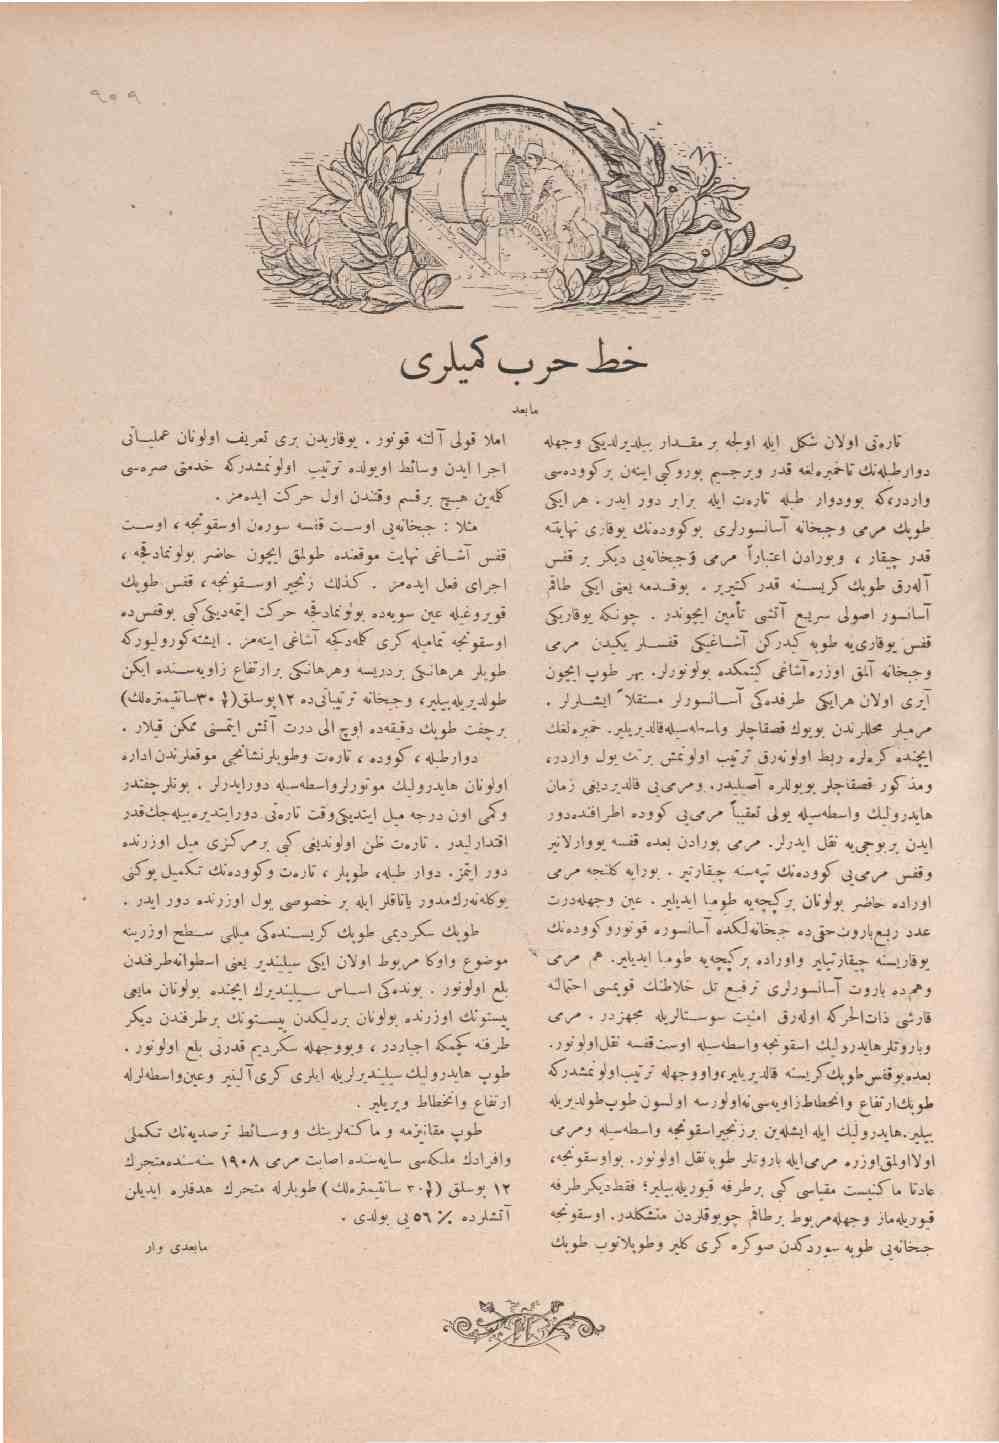 ٩٥٩
خط حرب كميلرى
مابعد
تاره‌تى اولان شكل ايله اولجه بر مقـدار بيلديرلديكى وجهله
دوارطبله‌نك تاخمبره‌لغه قدر وبرجسيم بوروكبى اينه‌ن بركووده‌سى
واردر،كه بوودوار طبله تاره‌ت ايله برابر دور ايدر . هر ايكى
طوپك مرمى وجبخانه آسانسورلرى بوكووده‌نك يوقارى نهايتنه
قدر چيقار ، وبورادن اعتباراً مرمى وجبخانه‌يى ديكر بر قفس
آله‌رق طوپك كريسـنه قدر كتيرير . بوقـدمه يعنى ايكى طاقم
آسانسور اصولى سريع آتشى تأمين ايچوندر . چونكه يوقاريكى
قفس يوقارى‌يه طوپه كيدركن آشـاغيكى قفسـلر يكيدن مرمى
وجبخانه آلمق اوزره آشاغى كيتمكده بولونورلر. بهر طوپ ايچون
آيرى اولان هرايكى طرفده‌كى آسـانسورلر مستقلاً ايشـلرلر .
مرميلر محللرندن بويوك قصقاچلر واسطه‌سيله‌قالديريلير. خمبره‌لغك
ايچنده كره‌لره ربط اولونه‌رق ترتيب اولونمش بر تك يول واردر،
ومذكور قصقاچلر بويوللره آصيليدر. ومرمى‌يى قالديرديغى زمان
هايدروليك واسطه‌سيله يولى تعقيباً مرمى‌يى كووده اطرافنده‌دور
ايدن بر بوجى‌يه نقل ايدرلر. مرمى بورادن بعده قفسه يووارلانير
وقفس مرمى‌يى كووده‌نك تپه‌سنه چيقارتير . بورايه كلنجه مرمى
اوراده حاضر بولونان بركپچه‌يه طومبا ايديلير . عين وجهله‌درت
عدد ربع‌باروت‌حقى‌ده جبخانه‌لكده آسانسوره قونوروكووده‌نك
يوقاريسنه چيقارتيلير واوراده بركپچه‌يه طومبا ايديلير. هم مرمى
وهم‌ده باروت آسانسورلرى ترفيع تل خلاطنك قوپمسى احتمالنه
قارشى ذات‌الحركه اوله‌رق امنيت سوستالريله مجهزدر . مرمى
وباروتلرهايدروليك اسقونجه واسطه‌سيله اوست‌قفسه نقل‌اولونور.
بعده‌بوقفس‌طوپك‌كريسنه قالديريلير،واووجهله ترتيب‌اولونمشدركه
طوپك‌ارتفاع وانحطاط‌زاويه‌سى‌نه‌اولورسه اولسون طوپ‌طولديريله
بيلير.هايدروليك ايله ايشله‌ين برزنجيراسقونجه واسطه‌سيله ومرمى
اولااولمق‌اوزره مرمى‌ايله باروتلر طوپه‌نقل اولونور. بواوسقونجه،
عادتا ماكنيست مقياسى كبى برطرفه قيوريله‌بيلير؛ فقط‌ديكرطرفه
قيوريله‌ماز وجهله‌مربوط برطاقم چوبوقلردن متشكلدر. اوسقونجه
جبخانه‌يى طوپه سوردكدن صوكره كرى كلير وطوپلانوب طوپك
املا قولى آلتنه قونور . يوقاريدن برى تعريف اولونان عمليـاتى
اجرا ايدن وسائط اويولده ترتيب اولونمشدركه خدمتى صره‌سى
كلمه‌ين هيچ برقسم وقتندن اول حركت ايده‌مز .
مثلا : جبخانه‌يى اوسـت قفسه سوره‌ن اوسقونجه ، اوسـت
قفس آشـاغى نهايت موقعنده طولمق ايچون حاضر بولونمادقجه ،
اجراى فعل ايده‌مز . كذلك زنجير اوسـقونجه ، قفس طوپك
قويروغيله عين سويه‌ده بولونمادقجه حركت ايتمه‌ديكى‌كبى بوقفس‌ده
اوسقونجه تماميله كرى كلمه‌دكجه آشاغى اينه‌مز . ايشته‌كورولويوركه
طوپلر هرهانكى بردريسه وهرهانكى برارتفاع زاويه‌سـنده ايكن
طولديريله‌بيلير، وجبخانه ترتيباتى‌ده ١٢پوسلق(٣٠سانتيمتره‌لك)
برچفت طوپك دقيقه‌ده اوچ الى درت آتش ايتمسنى ممكن قيلار .
دوارطبله ، كووده ، تاره‌ت وطوپلرنشانجى موقعلرندن اداره
اولونان هايدروليك موتورلرواسطه‌سيله دورايدرلر . بونلرچفتدر
وكمى اون درجه ميل ايتديكى‌وقت تاره‌تى دورايتديره‌بيله‌جك‌قدر
اقتدارليدر . تاره‌ت ظن اولونديغى كبى برمركزى ميل اوزرنده
دور ايتمز. دوار طبله، طوپلر ، تاره‌ت وكووده‌نك تكميل يوكنى
يوكله‌نه‌رك‌مدور ياتاقلر ايله بر خصوصى يول اوزرنده دور ايدر .
طوپك سكرديمى طوپك كريسـنده‌كى ميللى سـطح اوزرينه
موضوع واوكا مربوط اولان ايكى سيليندير يعنى اسطوانه‌طرفندن
بلع اولونور . بونده‌كى اسـاس سـيلينديرك ايچنده بولونان مايعى
پيستونك اوزرنده بولونان بردليكدن پيسـتونك برطرفندن ديكر
طرفنه كچمكه اجباردر ، وبووجهله سكرديم قدرتى بلع اولونور .
طوپ هايدروليك سيلينديرلريله ايلرى كرى‌آلينير وعين‌واسطه‌لرله
ارتفاع وانحطاط ويريلير .
طوپ مقانيزمه و ماكنه‌لرينك و وسـائط ترصديه‌نك تكملى
وافرادك ملكه‌سى سايه‌سنده اصابت مرمى ١٩٠٨ سنه‌سنده‌متحرك
١٢ پوسلق (٣٠ سانتيمتره‌لك) طوپلرله متحرك هدفلره ايديلن
آتشلرده ٪ ٥٦ يى بولدى .
مابعدى وار